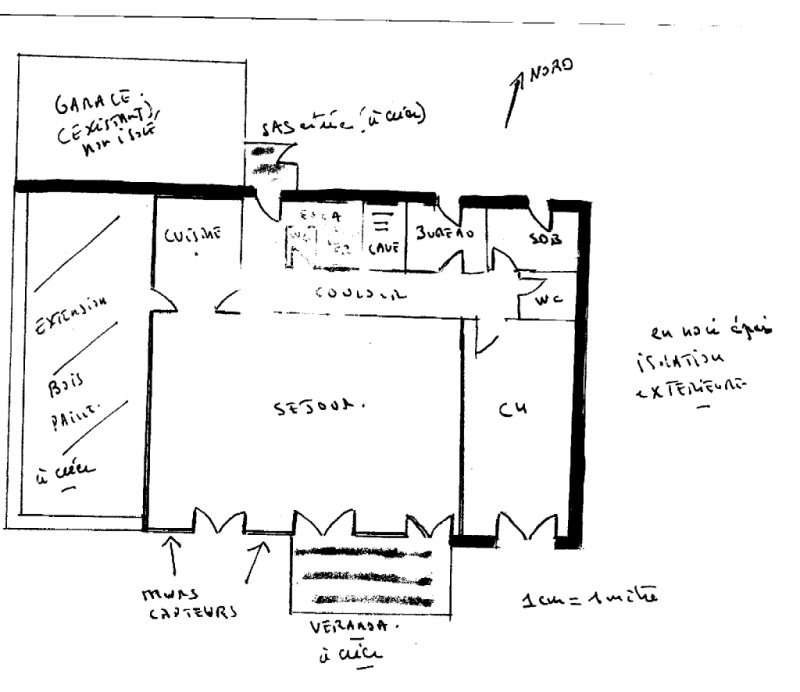 NORD
GARAGE.
(EXISTANT),
non isolé
SAS entrée (à créer)
CUISINE
ESCA
LIER
WC
CAVE
BUREAU
SDB
COULOIR
WC
EXTENSION
BOIS
PAILLE.
à créer
SEJOUR.
CH
en noir épais
ISOLATION
EXTERIEURE
MURS
CAPTEURS
VERANDA.
à créer
1cm = 1 mètre